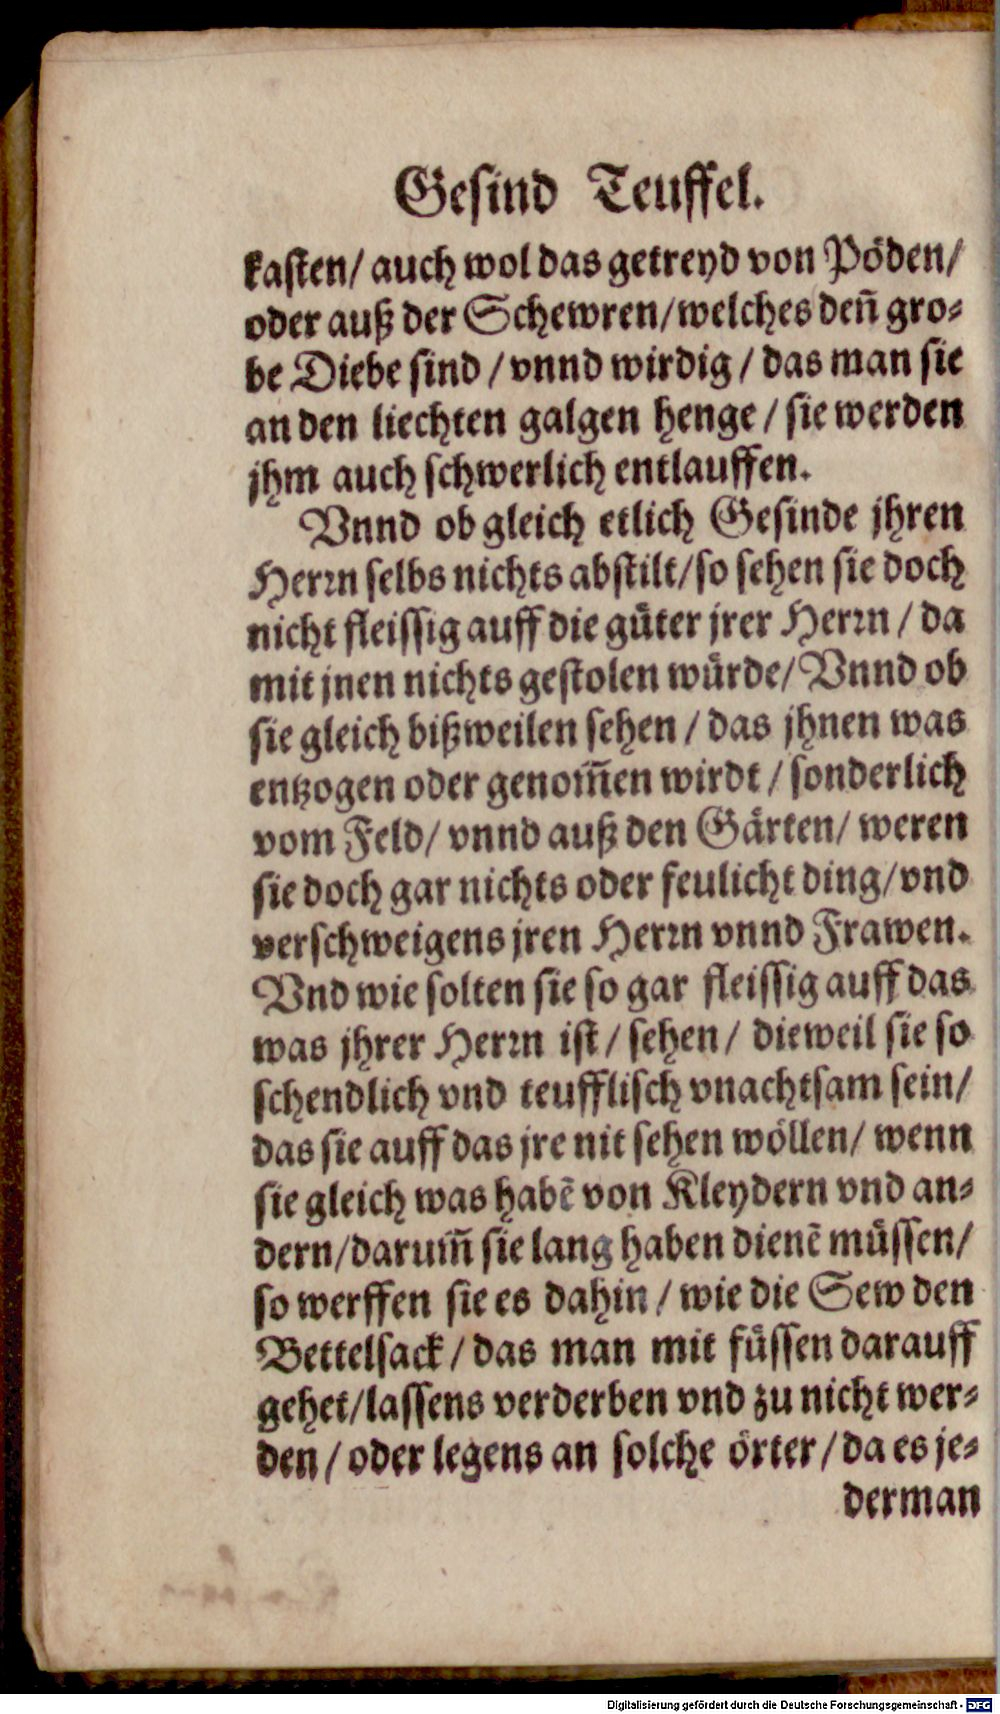 Gesind Teuffel.
kasten/ auch wol das getreyd von Pöden/
oder auß der Schewren/welches deñ gro⸗
be Diebe sind / vnnd wirdig / das man sie
an den liechten galgen henge / sie werden
jhm auch schwerlich entlauffen.
Vnnd ob gleich etlich Gesinde jhren
Herrn selbs nichts abstilt/so sehen sie doch
nicht fleissig auff die güter jrer Herrn / da
mit jnen nichts gestolen würde/ Vnnd ob
sie gleich bißweilen sehen / das jhnen was
entzogen oder genom̃en wirdt / sonderlich
vom Feld/ vnnd auß den Gärten/ weren
sie doch gar nichts oder feulicht ding/vnd
verschweigens jren Herrn vnnd Frawen.
Vnd wie solten sie so gar fleissig auff das
was jhrer Herrn ist/ sehen/ dieweil sie so
schendlich vnd teufflisch vnachtsam sein/
das sie auff das jre nit sehen wöllen/ wenn
sie gleich was habẽ von Kleydern vnd an⸗
dern/darum̃ sie lang haben dienẽ müssen/
so werffen sie es dahin / wie die Sew den
Bettelsack / das man mit füssen darauff
gehet/lassens verderben vnd zu nicht wer⸗
den / oder legens an solche örter / da es je⸗
derman
Digitalisierung gefördert durch die Deutsche Forschungsgemeinschaft - DFG